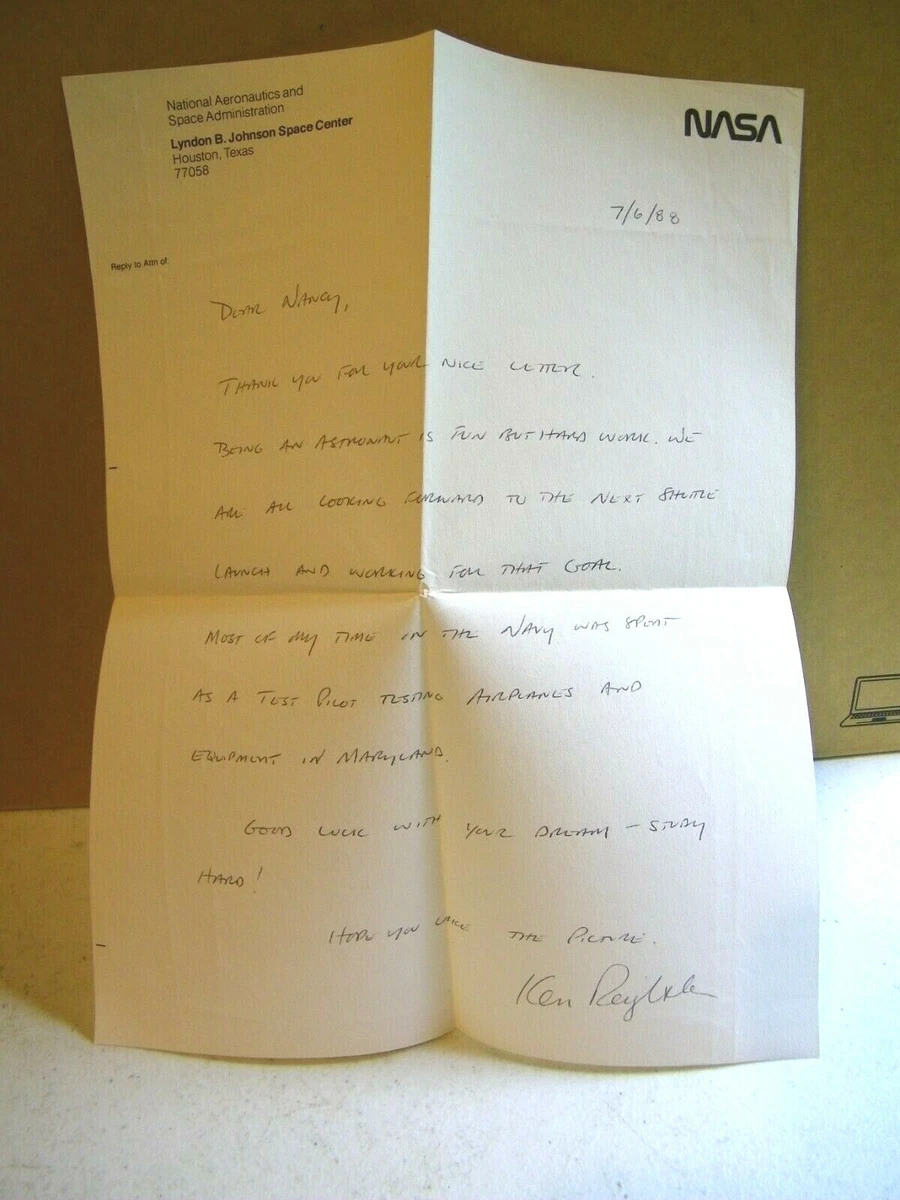 National Aeronautics and
Space Administration
Lyndon B. Johnson Space Center
Houston, Texas
77058
NASA
7/6/88
Reply to Attn of:
DEAR NANCY,
THANK YOU FOR YOUR NICE LETTER.
BEING AN ASTRONAUT IS FUN BUT HARD WORK. WE
ARE ALL LOOKING FORWARD TO THE NEXT SHUTTLE
LAUNCH AND WORKING FOR THAT GOAL.
MOST OF MY TIME IN THE NAVY WAS SPENT
AS A TEST PILOT TESTING AIRPLANES AND
EQUIPMENT IN MARYLAND.
GOOD LUCK WITH YOUR DREAM - STUDY
HARD!
HOPE YOU LIKE THE PICTURE.
Ken Reightler